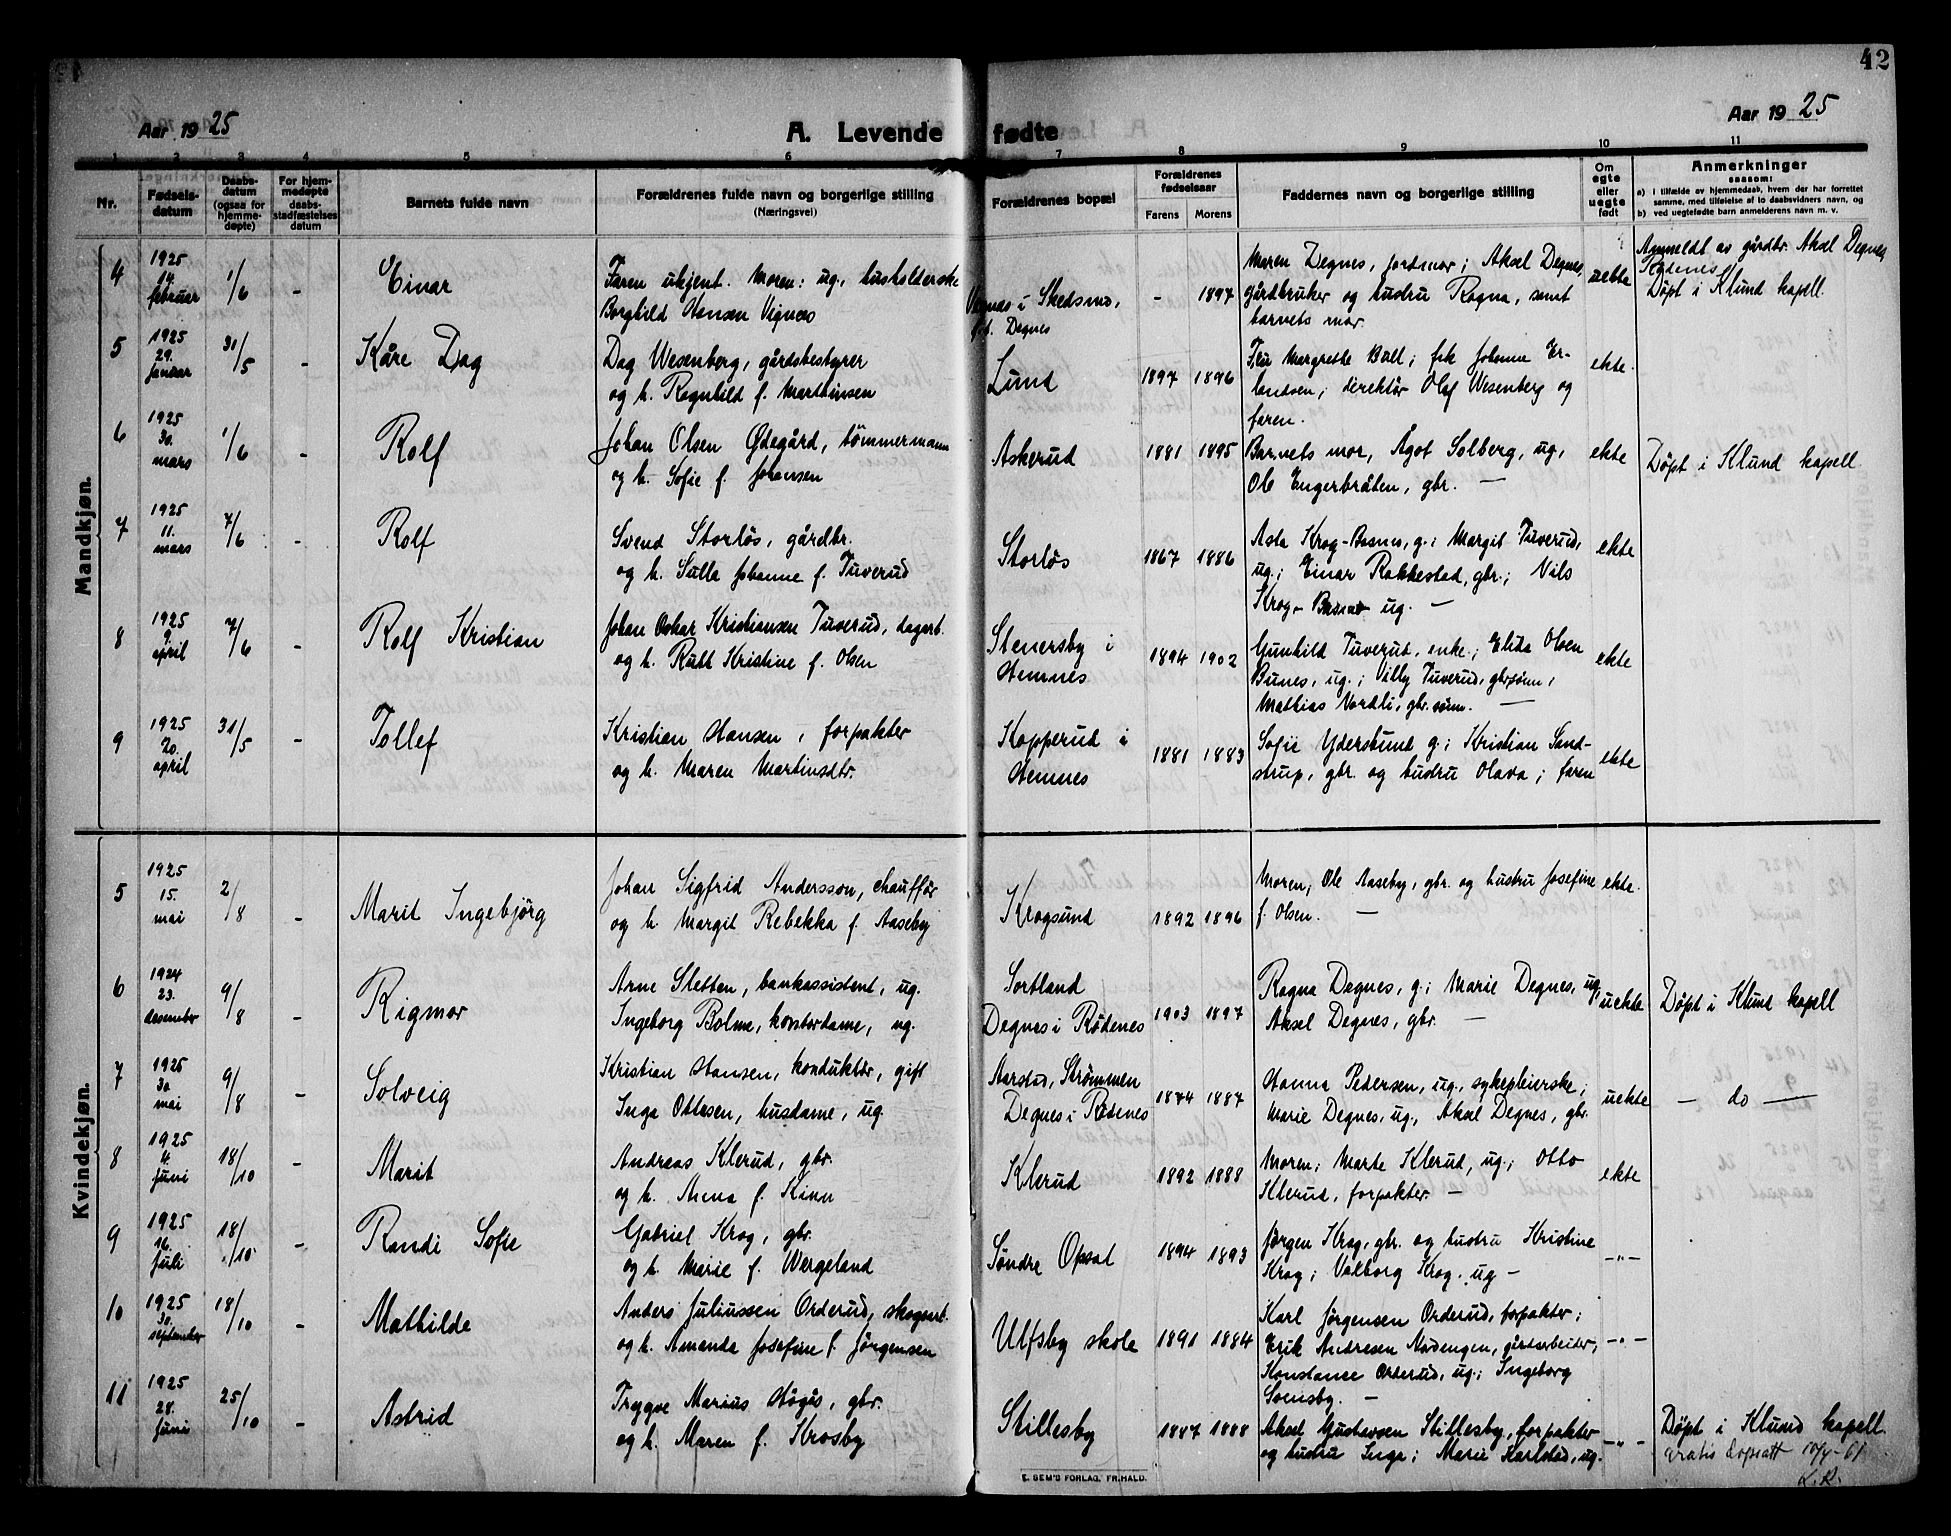 42
Aar 1925
A. Levende fødte
Aar 1925
1 2 3 4 5 6 7 8 9 10 11
Nr.
Fødsels-
datum
Daabs-
datum
(ogsaa for
hjemme-
døpte)
For hjem-
medøpte
daabs-
stadfæstelses
datum
Barnets fulde navn
Forældrenes fulde navn og borgerlige stilling
(Næringsvei)
Forældrenes bopæl
Forældrenes
fødselsaar
Farens Morens
Faddernes navn og borgerlige stilling
Om
egte
eller
uegte
født
Anmerkninger
saasom:
a) i tilfælde av hjemmedaab, hvem der har forrettet
samme, med tilføielse af to daabsvidners navn, og
b) ved uegtefødte barn anmelderens navn m. v.
Mandkjøn.
4
1925
14.
februar
1/6
Einar
Faren ukjent. Moren: ug., husholderske
Borghild Hansen Vignæs
Vignæs i Skedsmo,
Degnes
- 1897
Maren Degnes, jordmor; Aksel Degnes,
gårdbruker og hustru Ragna, samt
barnets mor.
uekte
Anmeldt av gårdbr. Aksel Degnes
Rødenes
Døpt i Klund kapell.
5
1925
29.
januar
31/5
-
Kåre Dag
Dag Wesenberg, gårdsbestyrer
og h. Ragnhild f. Marthinsen
Lund
1897 1896
Fru Margrethe Bull; frk Johanne Er-
landsen; direktør Olaf Wesenberg og
faren.
ekte.
6
1925
30.
mars
1/6
-
Rolf
Johan Olsen Ødegård, tømmermann
og h. Sofie f. Johansen
Askerud
1881 1895
Barnets mor, Ågot Solberg, ug,
Ole Engerbråten, gbr. —
ekte
Døpt i Klund kapell
7
1925
11.
mars
7/6
-
Rolf
Svend Storløs, gårdbr.
og h. Sulla Johanne f. Tuverud
Storløs
1867 1886
Asta Krog-Basnes, g.; Margit Tuverud,
ug.; Einar Rakkestad, gbr.; Nils
Krog- ug. —
ekte
8
1925
9.
april
7/6
-
Rolf Kristian
Johan Oskar Kristiansen Tuverud, dagarb.
og h. Ruth Kristine f. Olsen
Stenersby i
Hemnes
1894 1902
Gunhild Tuverud, enke; Elida Olsen
Bunes, ug.; Villy Tuverud, gbrsønn,
Mathias Nordli, gbr.sønn. —
ekte
9
1925
20.
april
31/5
-
Tollef
Kristian Hansen, forpakter
og h. Maren Martinsdtr.
Kopperud i
Hemnes
1881 1883
Sofie Yderstund g.; Kristian Sand-
strup, gbr. og hustru Olava; faren
ekte
Kvindekjøn.
5
1925
15.
mai
2/8
-
Marit Ingebjørg
Johan Sigfrid Andersson, chauffør
og h. Margit Rebekka f. Aaseby
Krogsund
1892 1896
Moren; Ole Aaseby, gbr. og hustru Josefine
f. Olsen. —
ekte.
6
1924
23.
desember
9/8
-
Rigmor
Arne Sletten, bankassistent, ug.
Ingeborg Bolme, kontordame, ug.
Sortland
Degnes i Rødenes
1903 1897
Ragna Degnes, g.; Marie Degnes, ug,
Aksel Degnes, gbr. —
uekte
Døpt i Klund kapell
7
1925
30
mai
9/8
-
Solveig
Kristian Hansen, konduktør, gift
Inga Ottesen, husdame, ug.
Aarstad, Strømmen
Degnes i Rødenes
1874 1887
Hanna Pedersen, ug., sykepleierske;
Marie Degnes, ug., Aksel Degnes, gbr.
uekte
— do —
8
1925
4.
juni
18/10
-
Marit
Andreas Klerud, gbr.
og h. Anna f. Kinn
Klerud
1892 1888
Moren; Marte Klerud, ug.; Otto
Klerud, forpakter. —
ekte
9
1925
16.
juli
18/10
-
Randi Sofie
Gabriel Krog, gbr.
og h. Marie f. Wergeland
Søndre Opsal
1894 1893
Jørgen Krog, gbr. og hustru Kristine
Krog; Valborg Krog. ug —
-"-
10
1925
30.
september
18/10
-
Mathilde
Anders Juliussen Orderud, skogsarb.
og h. Amanda Josefine f. Jørgensen
Ulfsby skole
1891 1884
Karl Jørgensen Orderud, forpakter;
Erik Andresen Nordengen, gårdarbeider,
Konstance Orderud, ug.; Ingeborg
Soensby. —
-"-
11
1925
28.
juni
25/10
-
Astrid
Trygve Marius Høgås, gbr.
og h. Maren f. Krosby
Stillesby
1887 1888
Aksel Gustavsen Stillesby, forpakter
og hustru Inga; Marie Karlstad, ug.
-"-
Døpt i Klund kapell.
gratis dåpsatt
L.R.
E. SEM'S FORLAG, FR.HALD.